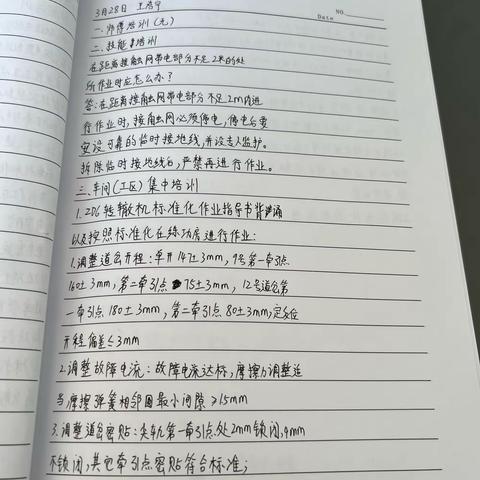 NO.
Date
3月28日 王启宇
一、师傅培训(无)
二、技能培训
在距离接触网带电部分不足2米的处
所作业时应怎么办?
答:在距离接触网带电部分不足2m内进
行作业时,接触网必须停电,停电后要
安设可靠的临时接地线,并设专人监护。
拆除临时接地线后,严禁再进行作业。
三、车间(工区)集中培训
1.ZD6转辙机标准化作业指导书背诵
以及按照标准化在练功房进行作业:
1.调整道岔开程:单开147±3mm,9号第一牵引点
160±3mm,第二牵引点75±3mm,12号道岔第
一牵引点180±3mm,第二牵引点80±3mm,定反位
开程偏差≤3mm
2.调整故障电流:故障电流达标,摩擦力调整适
当摩擦弹簧相邻圈最小间隙≥1.5mm
3.调整道岔密贴:尖轨第一牵引点处2mm锁闭,4mm
不锁闭,其它牵引点密贴符合标准;